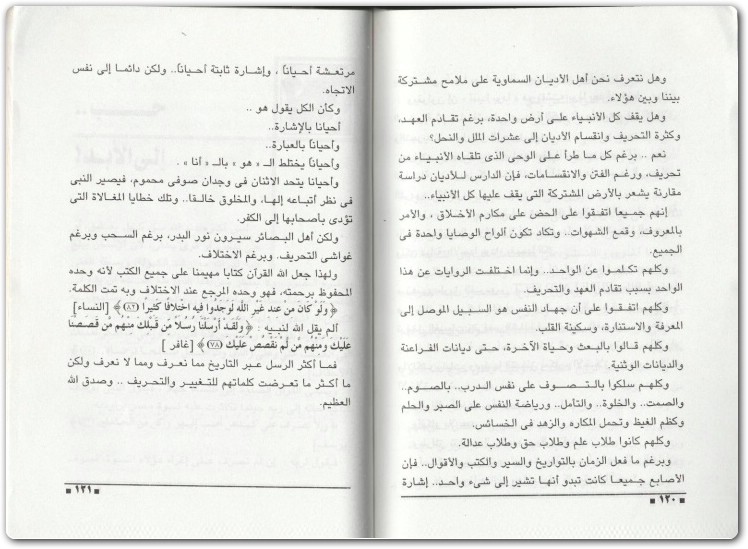 وهل نتعرف نحن أهل الأديان السماوية على ملامح مشتركة
بيننا وبين هؤلاء.
وهل يقف كل الأنبياء على أرض واحدة، برغم تقادم العهد،
وكثرة التحريف وانقسام الأديان إلى عشرات الملل والنحل؟
نعم .. برغم كل ما طرأ على الوحى الذى تلقاه الأنبياء من
تحريف، ورغم الفتن والانقسامات، فإن الدارس للأديان دراسة
مقارنة يشعر بالأرض المشتركة التى يقف عليها كل الأنبياء..
إنهم جميعا اتفقوا على الحض على مكارم الأخلاق ، والأمر
بالمعروف، وقمع الشهوات.. وتكاد تكون ألواح الوصايا واحدة فى
الجميع.
وكلهم تكلموا عن الواحد.. وإنما اختلفت الروايات عن هذا
الواحد بسبب تقادم العهد والتحريف.
وكلهم اتفقوا على أن جهاد النفس هو السبيل الموصل إلى
المعرفة والاستنارة، وسكينة القلب.
وكلهم قالوا بالبعث وحياة الآخرة، حتى ديانات الفراعنة
والديانات الوثنية.
وكلهم سلكوا بالتصوف على نفس الدرب.. بالصوم..
والصمت.. والخلوة.. والتأمل.. ورياضة النفس على الصبر والحلم
وكظم الغيظ وتحمل المكاره والزهد فى الخسائس.
وكلهم كانوا طلاب علم وطلاب حق وطلاب عدالة.
وبرغم ما فعل الزمان بالتواريخ والسير والكتب والأقوال.. فإن
الأصابع جميعا كانت تبدو أنها تشير إلى شىء واحد.. إشارة
١٢٠
مرتعشة أحياناً ، وإشارة ثابتة أحياناً.. ولكن دائما إلى نفس
الاتجاه.
وكأن الكل يقول هو ..
أحيانا بالإشارة..
وأحياناً بالعبارة..
وأحياناً يختلط الـ « هو » بالـ « أنا » .
وأحيانا يتحد الاثنان فى وجدان صوفى محموم، فيصير النبى
فى نظر أتباعه إلها، والمخلوق خالقا.. وتلك خطايا المغالاة التى
تؤدى بأصحابها إلى الكفر.
ولكن أهل البصائر سيرون نور البدر، برغم السحب وبرغم
غواشى التحريف. وبرغم الاختلاف.
ولهذا جعل الله القرآن كتابا مهيمنا على جميع الكتب لأنه وحده
المحفوظ برحمته، فهو وحده المرجع عند الاختلاف وبه تمت الكلمة.
﴿وَلَوْ كَانَ مِنْ عِندِ غَيْرِ اللَّهِ لَوَجَدُوا فِيهِ اخْتِلافًا كَثِيرًا (٨٢)﴾ [النساء]
ألم يقل الله لنبيه : ﴿وَلَقَدْ أَرْسَلْنَا رُسُلاً مِّن قَبْلِكَ مِنْهُم مَّن قَصَصْنَا
عَلَيْكَ وَمِنْهُم مَّن لَّمْ نَقْصُصْ عَلَيْكَ (٧٨)﴾ [غافر ]
فما أكثر الرسل عبر التاريخ مما نعرف ومما لا نعرف ولكن
ما أكثر ما تعرضت كلماتهم للتغيير والتحريف .. وصدق الله
العظيم.
١٢١